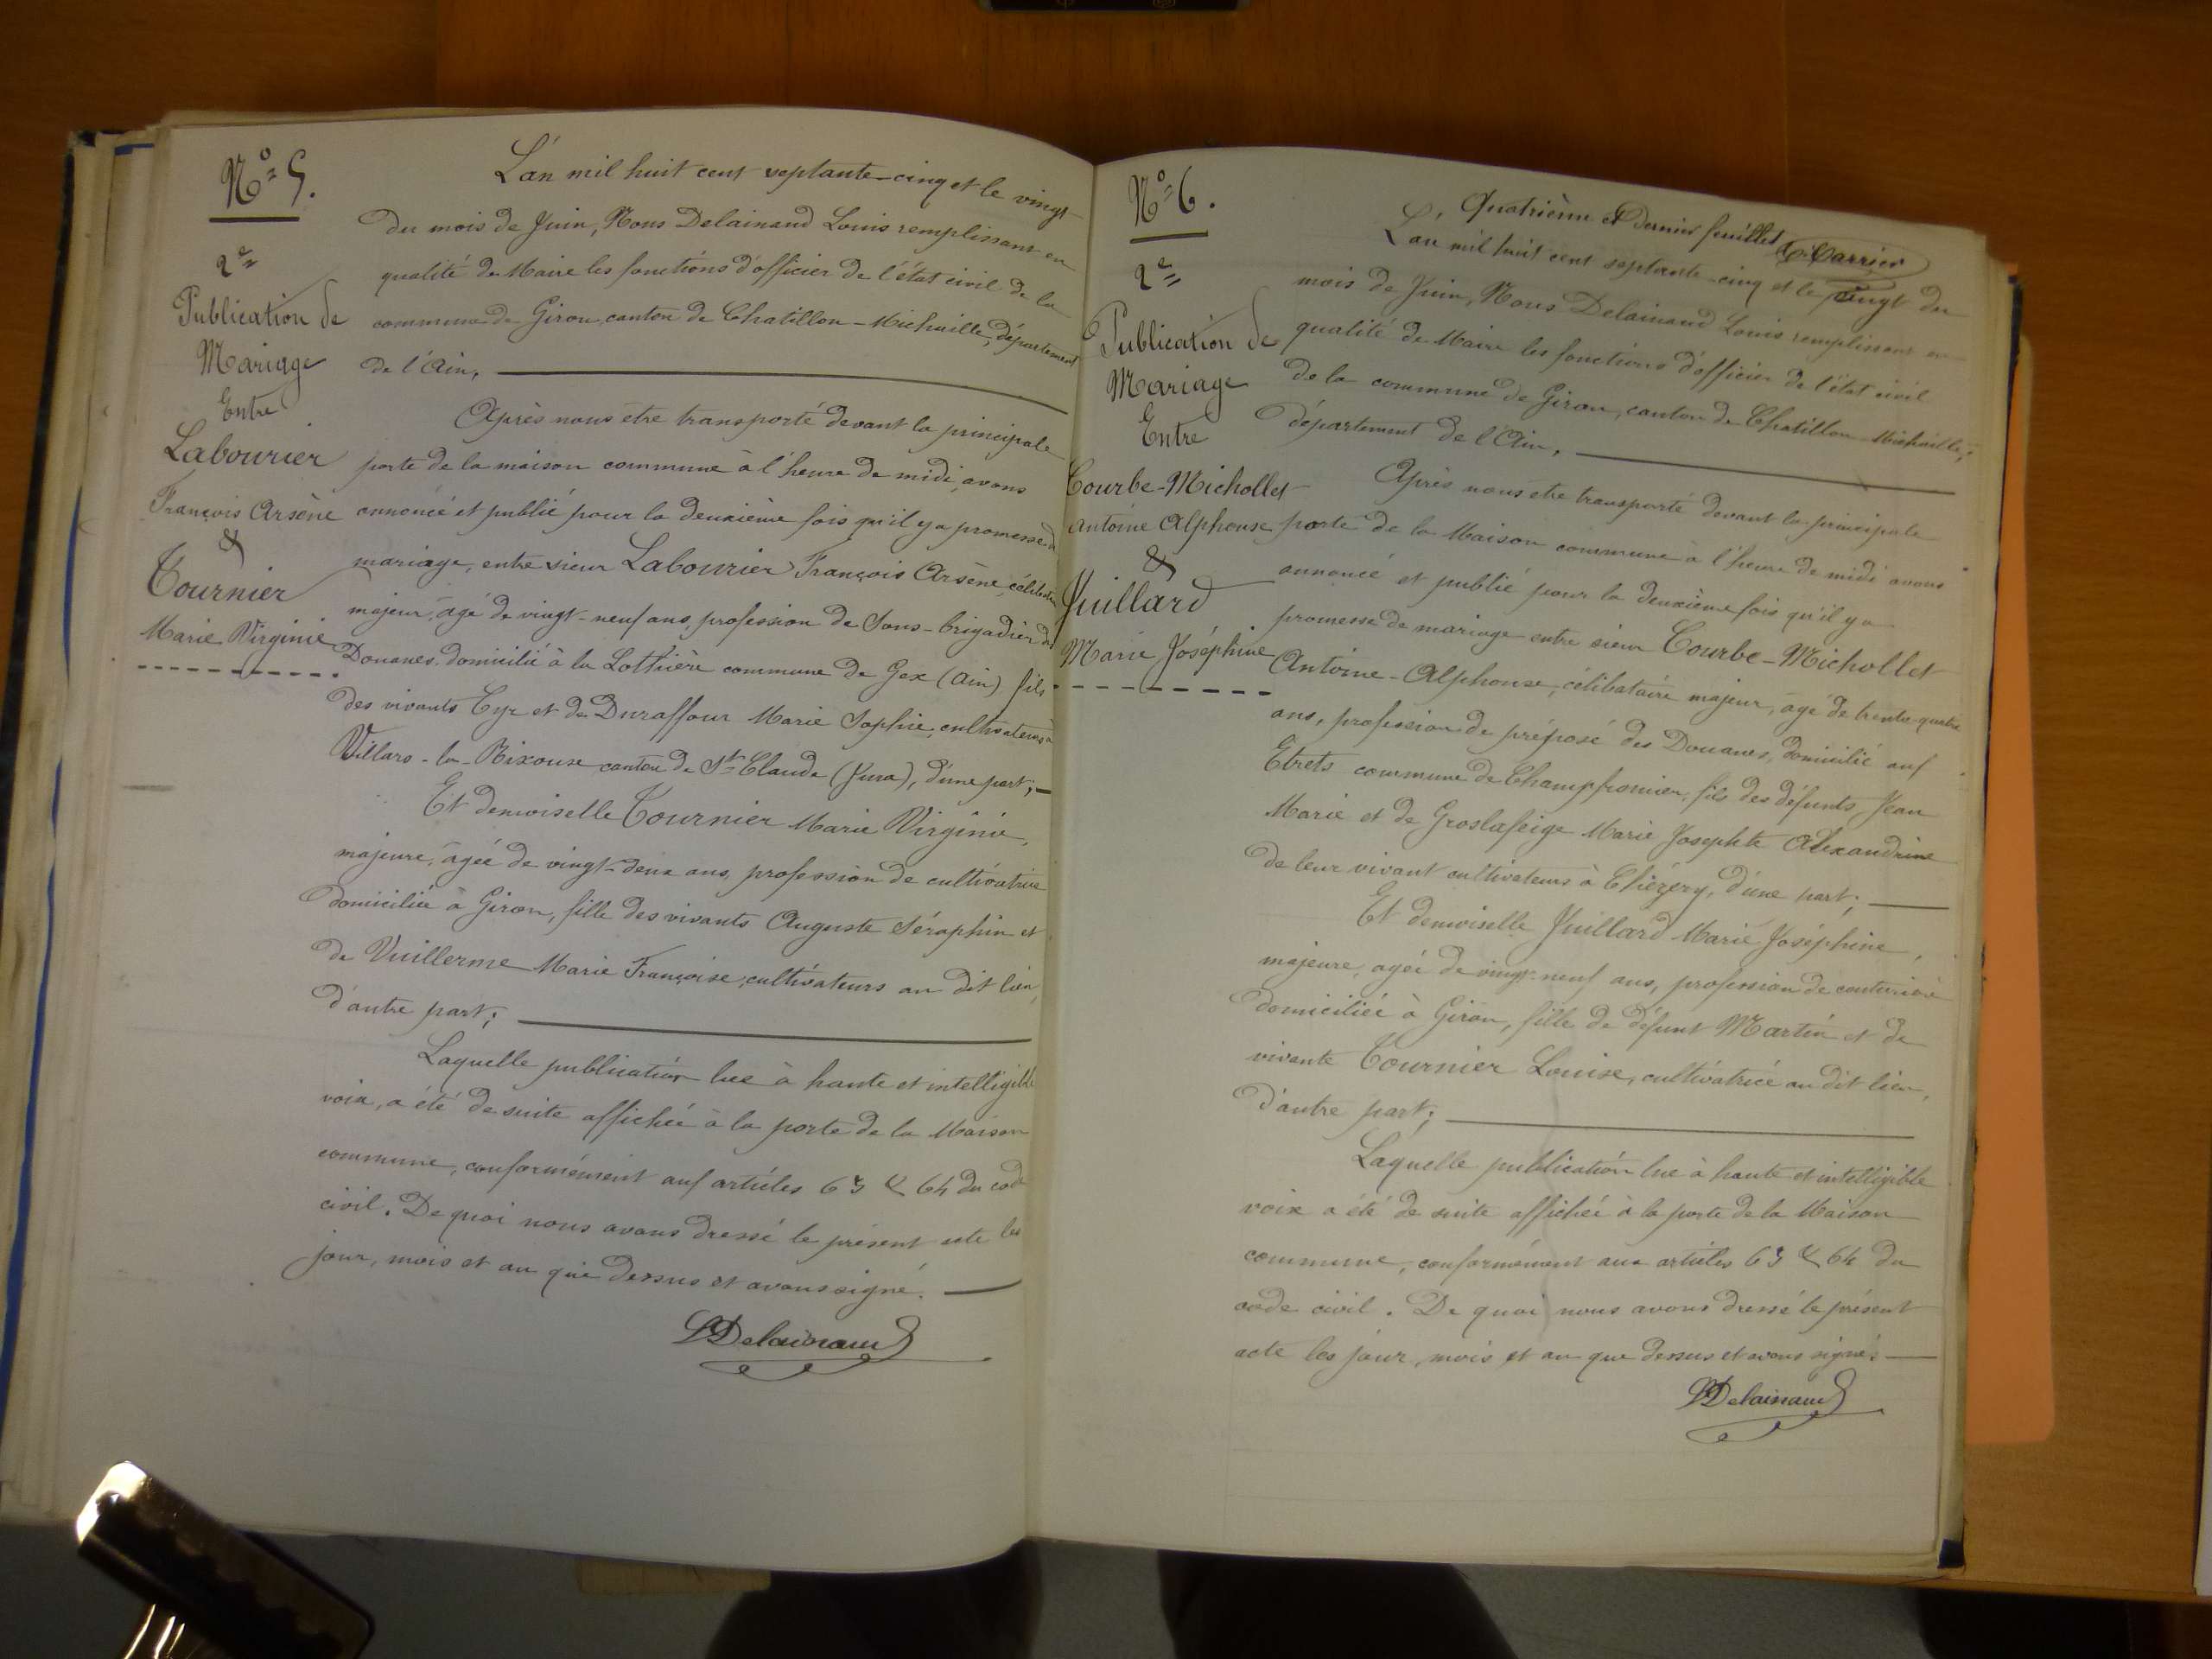 Nº 5.
2e
Publication de
Mariage
Entre
Labourier
François Arsène
&
Tournier
Marie Virginie
L'an mil huit cent septante-cinq et le vingt
du mois de Juin, Nous Delainaud Louis remplissant en
qualité de Maire les fonctions d'officier de l'état civil de la
commune de Giron, canton de Chatillon-Michaille, département
de l'Ain,
Après nous être transporté devant la principale
porte de la maison commune à l'heure de midi, avons
annoncé et publié pour la deuxième fois qu'il y a promesse de
mariage, entre sieur Labourier François Arsène, célibataire
majeur, âgé de vingt-neuf ans, profession de Sous-brigadier des
Douanes, domicilié à la Lothière commune de Gex (Ain) fils
des vivants Cyr et de Duraffour Marie Sophie, cultivateurs à
Villars-la-Rixouse canton de St Claude (Jura), d'une part;
Et demoiselle Tournier Marie Virginie,
majeure, âgée de vingt-deux ans, profession de cultivatrice
domiciliée à Giron, fille des vivants Auguste Séraphin et
de Vuillerme Marie Françoise, cultivateurs au dit lieu,
d'autre part;
Laquelle publication lue à haute et intelligible
voix, a été de suite affichée à la porte de la Maison
commune, conformément aux articles 63 & 64 du code
civil. De quoi nous avons dressé le présent acte les
jour, mois et an que dessus et avons signé.
LDelainaud
Nº 6.
2e
Publication de
Mariage
Entre
Courbe-Michollet
Antoine Alphonse
&
Juillard
Marie Joséphine
Quatrième et dernier feuillet C. Carrier
L'an mil huit cent septante-cinq et le vingt du
mois de Juin, Nous Delainaud Louis remplissant en
qualité de Maire les fonctions d'officier de l'état civil
de la commune de Giron, canton de Chatillon-Michaille,
département de l'Ain,
Après nous être transporté devant la principale
porte de la Maison commune à l'heure de midi avons
annoncé et publié pour la deuxième fois qu'il y a
promesse de mariage entre sieur Courbe-Michollet
Antoine-Alphonse, célibataire majeur, âgé de trente-quatre
ans, profession de préposé des Douanes, domicilié aux
Etrets commune de Champfromier, fils des défunts Jean
Marie et de Groslafeige Marie Josephte Alexandrine
de leur vivant cultivateurs à Chézery, d'une part;
Et demoiselle Juillard Marie Joséphine,
majeure, agée de vingt-neuf ans, profession de couturière
domiciliée à Giron, fille de défunt Martin et de
vivante Tournier Louise, cultivatrice au dit lieu,
d'autre part;
Laquelle publication lue à haute et intelligible
voix a été de suite affichée à la porte de la Maison
commune, conformément aux articles 63 & 64 du
code civil. De quoi nous avons dressé le présent
acte les jour, mois et an que dessus et avons signé.
LDelainaud